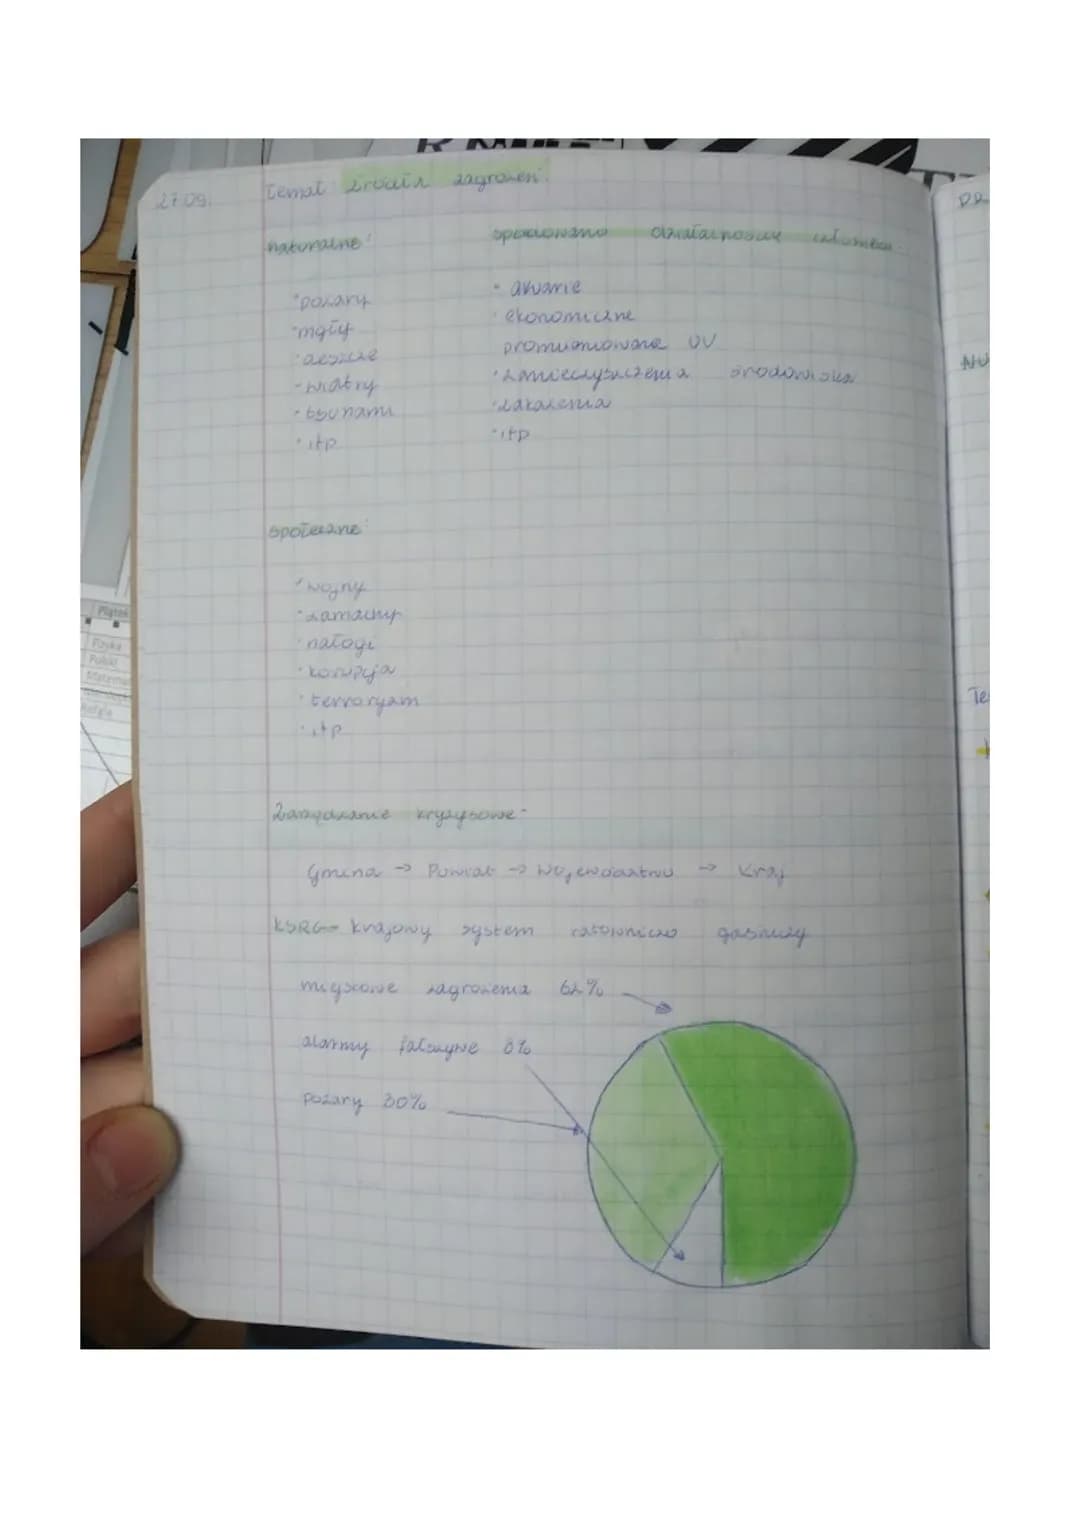 27.09.
Temat: źródła zagrożeń.
naturalne:
spowodowane działalnością człowieka
• pożary
• mgły
• deszcze
- wiatry
• tsunami
• itp
• awarie
• ekonomiczne
promieniowanie UV
• zanieczyszczenia środowiska
• zakażenia
• itp
społeczne:
• wojny
• zamachy
• nałogi
• korupcja
• terroryzm
• itp
Zarządzanie kryzysowe -
Gmina → Powiat → Województwo → Kraj
KSRG - krajowy system ratowniczo gaśniczy
miejscowe zagrożenia 62%
alarmy fałszywe 8%
pożary 30%
Piątek
Fizyka
Polski
Matema
Te